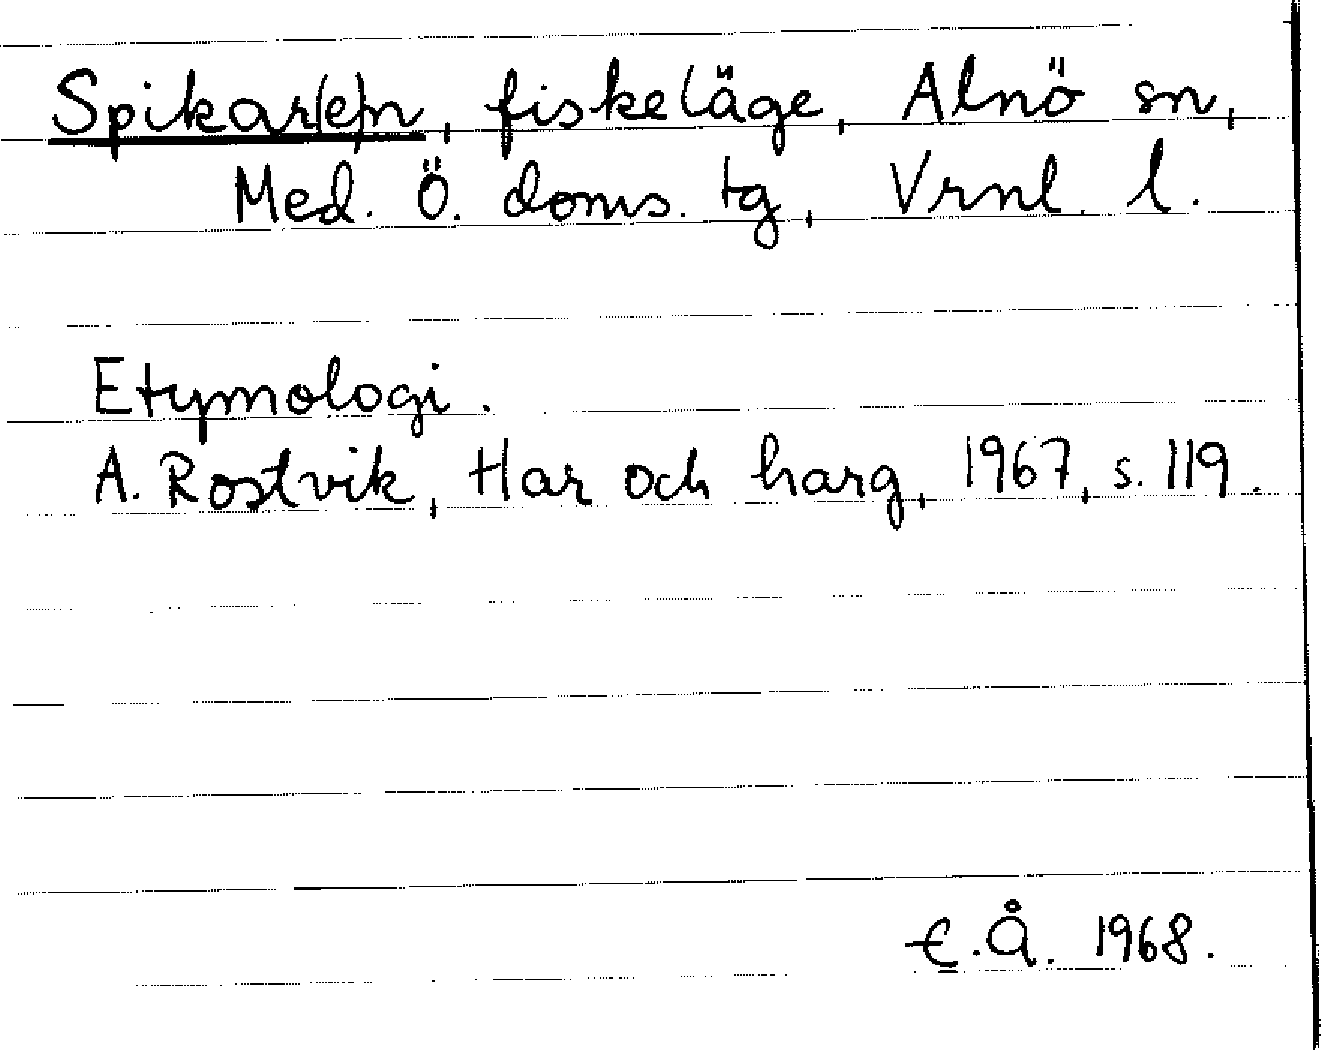 Spikar(e)n, fiskeläge, Alnö sn,
Med. Ö. doms. tg, Vrnl. l.
Etymologi.
A. Rostvik, Har och harg, 1967, s. 119.
E.Å. 1968.